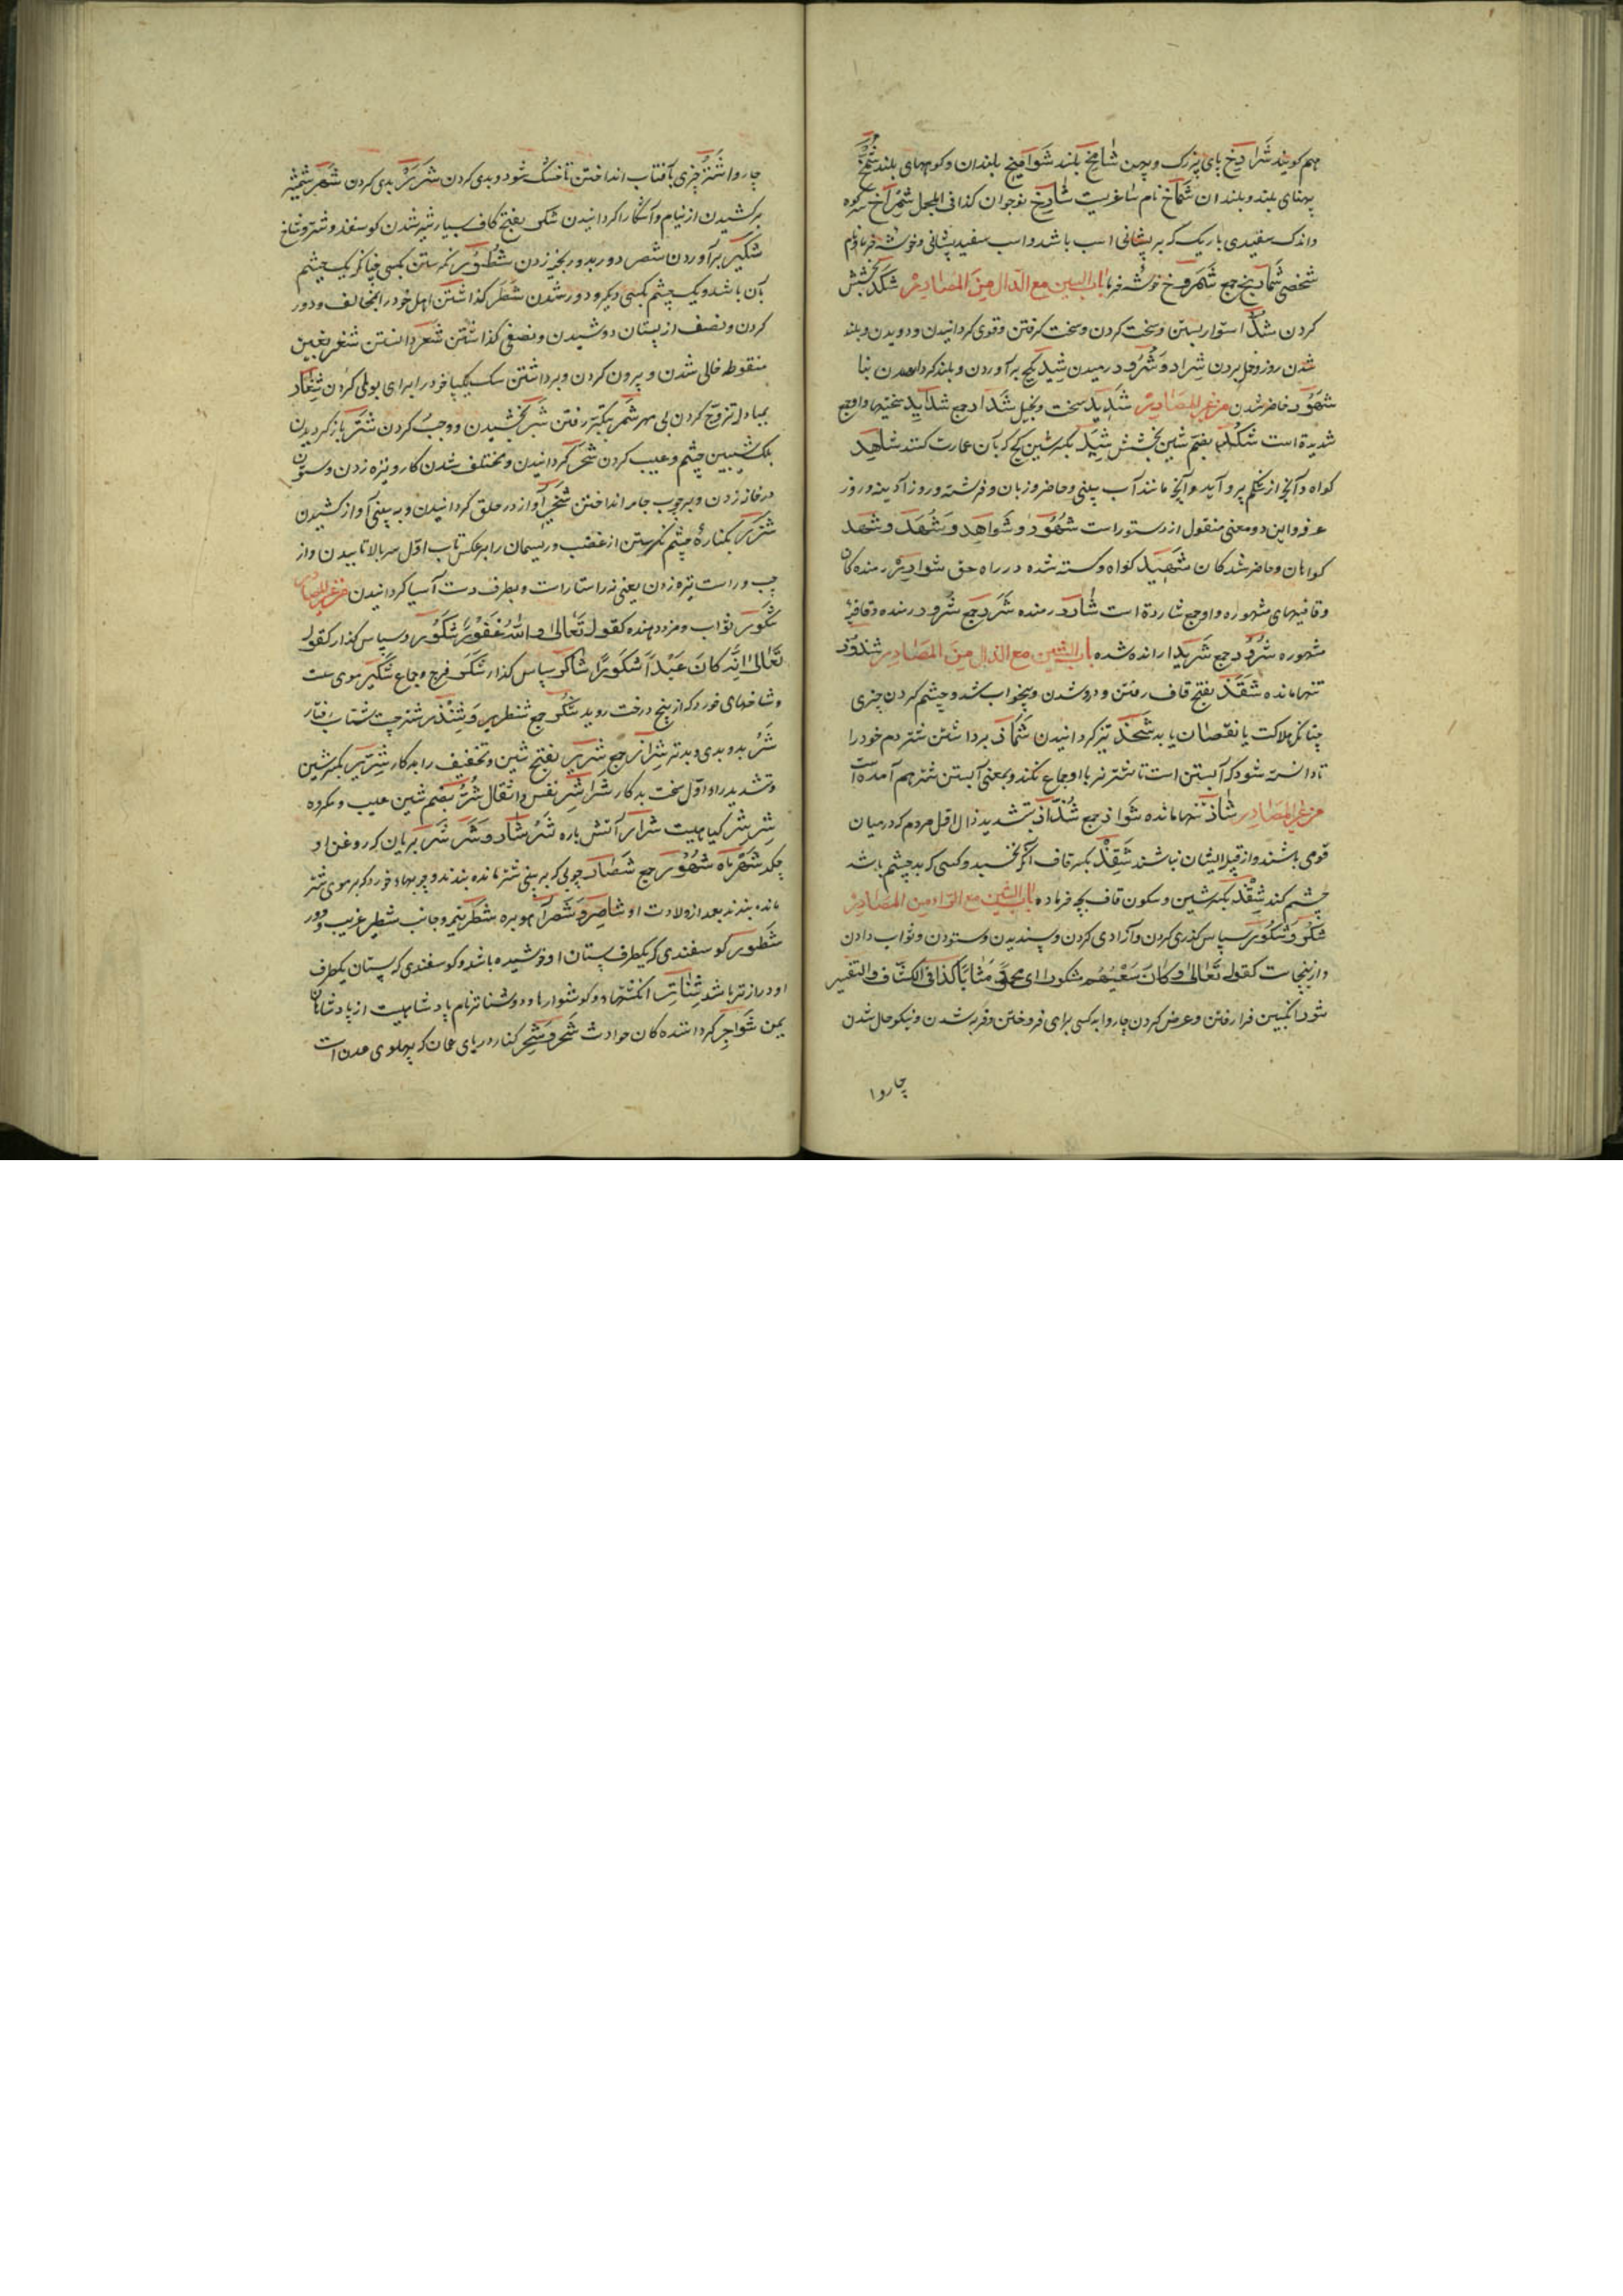 هم گویند شَرادِخ پای بزرگ و پهن شامِخ بلند شَوامِخ بلندان و کوههای بلند شُمَّخ
پهنای بلند و بلندان شَمّاخ نام شاعریست شادِخ نوجوان کذا فی المجمل شِمْراخ سر کوه
و اندک سفیدی باریک که بر پیشانی اسب باشد و اسب سفید پیشانی و خوشه خرما و نام
شخصی شَماریخ جمع شُمْروخ خوشه خرما باب الشین مع الدال من المصادر شَکْد بخشش
کردن شَدّ استوار بستن و سخت کردن و سخت گرفتن و قوی گردانیدن و دویدن و بلند
شدن روز و حمل بردن شِراد و شُرود رمیدن شَید گچ برآوردن و بلند کردن بنا
شُهود حاضر شدن من غیر المصادر شَدید سخت و بخیل شِداد جمع شَدایِد سختیها و او جمع
شدیدة است شُکْد بضم شین بخشش شِید بکسر شین گچ که بآن عمارت کنند شاهِد
گواه و آنچه از شکم برو آید و آنچه مانند آب بینی و حاضر و زبان و فرشته و روز آدینه و روز
عرفه و این دو معنی منقول از دستور است شُهُود و شَواهِد و شُهَّد و شَهْد
گواهان و حاضر شدگان شَهید گواه و کشته شده در راه حق شَوارِد رمنده گان
و قافیهای مشهوره و او جمع شاردة است شارِد رمنده شَرَد جمع شَرود رمنده و قافیهٔ
مشهوره شُرُد جمع شَرید رانده شده باب الشین مع الذال من المصادر شُذوذ
تنها مانده شَقَذ بفتح قاف رفتن و دور شدن و بیخواب شدن و چشم کردن چیزی
چنانکه هلاکت یا نقصان یابد شَحْذ تیز گردانیدن شِماذ برداشتن شتر دم خود را
تا دانسته شود که آبستن است تا شتر نر با او جماع نکند و بمعنی آبستن شتر هم آمده است
من غیر المصادر شاذّ تنها مانده شَواذّ جمع شُذّاذ بتشدید ذال اقل مردم که در میان
قومی باشند و از قبیل ایشان نباشند شَقِذ بکسر قاف آنکه نخسبد و کسی که بد چشم باشد
چشم کند شِقْذ بکسر شین و سکون قاف بچه فرماده باب الشین مع الراء من المصادر
شُکْر و شُکور سپاس گذاری کردن و آزادی کردن و پسندیدن و ستودن و ثواب دادن
و ازینجاست کقوله تعالی و کان سعیهم مشکورا ای مثابا کذا فی الکشاف و التفسیر
شَور انگبین فرا رفتن و عرض کردن چاروا به کسی برای فروختن و فربه شدن و نیکو حال شدن
چاروا
چاروا شَرّ چیزی بآفتاب انداختن تا خشک شود و بدی کردن شَرَر بدی کردن شَهْر شمشیر
برکشیدن از نیام و آشکارا گردانیدن شَکَر بفتح کاف بسیار شیر شدن گوسفند و شتر و شاخ
شَکیر برآوردن شَصْر دور بدور بخیه زدن شُطور نگرستن بکسی چنانکه یک چشم
بآن باشد و یک چشم بکسی دیگر و دور شدن شَطْر گذاشتن اهل خود را بمخالف و دور
کردن و نصف از پستان دوشیدن و نصفی گذاشتن شَعْر دانستن شَغْر بغین
منقوطه خالی شدن و بیرون کردن و برداشتن سگ یک پا خود را برای بول کردن شِغار
بمبادله تزویج کردن بی مهر شَمْر بتکبر رفتن شَبْر بخشیدن و وجب کردن شَتَر باز گردیدن
پلک شیبین چشم و عیب کردن شَجْر گردانیدن و مختلف شدن کار و نیزه زدن و ستون
در خانه زدن و بر چوب جامه انداختن شَخیر آواز در حلق گردانیدن و به بینی آواز کشیدن
شَزْر بکنارهٔ چشم نگرستن از غضب و ریسمان را برعکس تاب اول سر بالا تابیدن و از
چپ و راست نیزه زدن یعنی نه راستا راست و بطرف دست آسیا گردانیدن من غیر المصادر
شَکور ثواب و مزد دهنده کقوله تعالی و الله غفور شکور و سپاس گذار کقوله
تعالی انه کان عبدا شکورا شاکِر سپاس گذار شَکْر فرج و جماع شَکیر موی سست
و شاخهای خورد که از بیخ درخت روید شُکُر جمع شنظیر و شِنْذِر شتر چست شتاب رفتار
شَرّ بد و بدی و بدتر شِرار جمع شَریر بفتح شین و تخفیف را بدکار شِرّیر بکسر شین
و تشدید را و اول سخت بدکار شَراشِر نفس و اثقال شُرّ بضم شین عیب و مکروه
شِرشِر گیاهیست شَرار آتش پاره شَرْشار و شَرْشَر بریان که روغن او
چکد شَهْر ماه شُهُور جمع شِصار چوبی که به بینی شتر مانده بندند و چوبهاء خورد که بر موی شتر
ماده بندند بعد از ولادت او شاصِر و شَصَر آهو بره شَطْر نیم و جانب شَطیر غریب و دور
شَطور گوسفندی که یکطرف پستان او خوشیده باشد و گوسفندی که پستان یکطرف
او درازتر باشد شَناتِر انگشتها و گوشوارها و ذو شناتر نام پادشاهیست از پادشاهان
یمن شَواجِر گرداننده گان حوادث شَحْر و شِحْر کنار دریای عمان که پهلوی عدن است